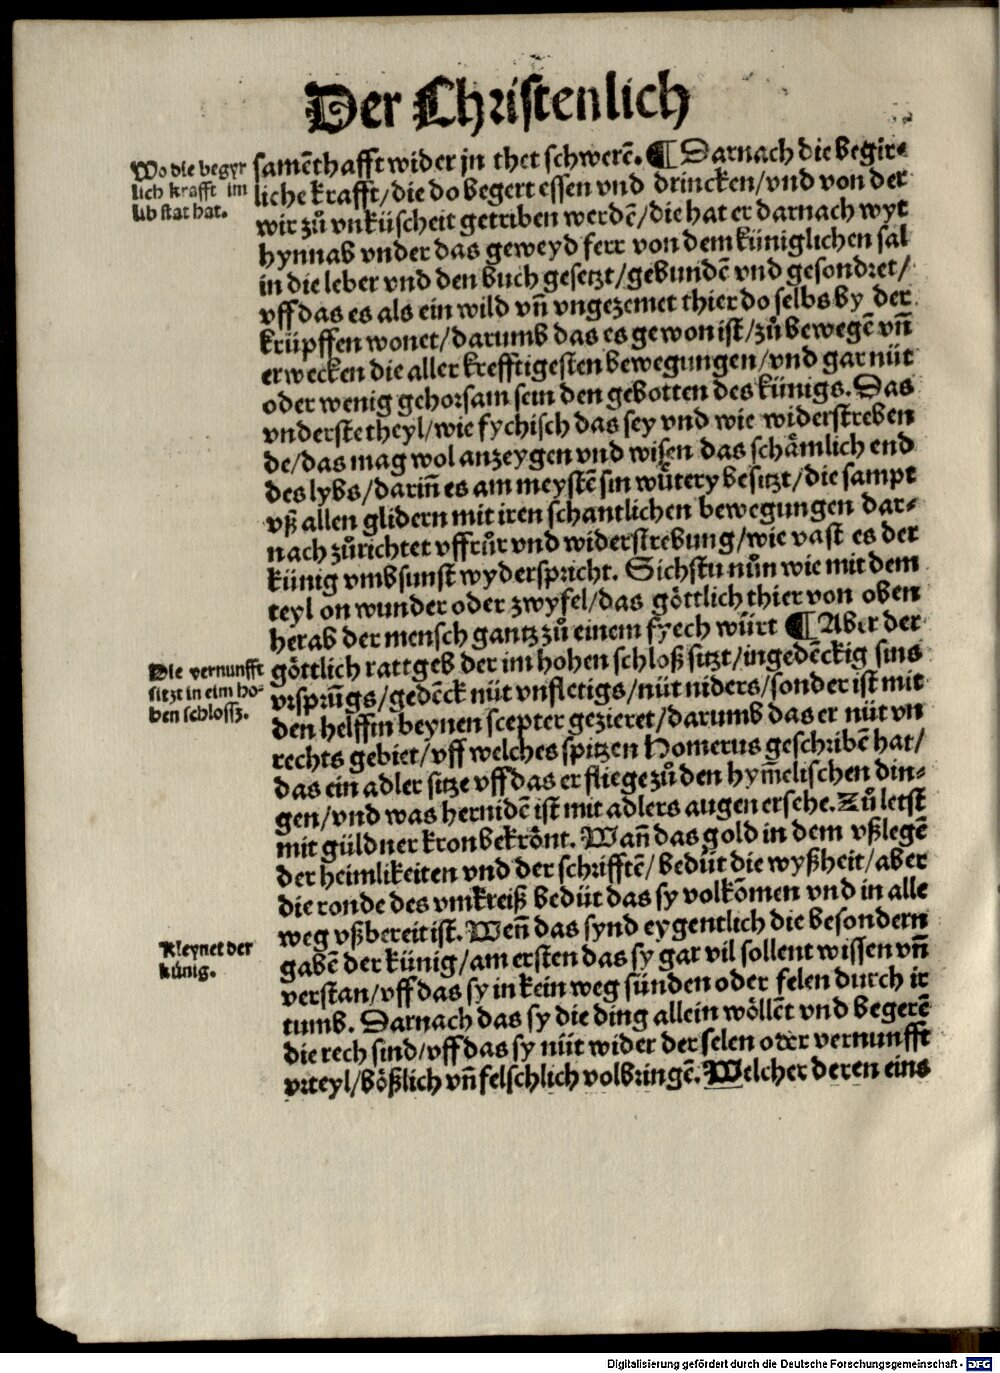 Der Christenlich
Wo die begyr
lich krafft im
lib stat hat.
samēthafft wider jn thet schwerē. ¶ Darnach die begir⸗
liche krafft/die do begert essen vnd drincken/vnd von der
wir zů vnküscheit getriben werdē/die hat er darnach wyt
hynnab vnder das geweyd ferr von dem küniglichen sal
in die leber vnd den buch gesetzt/gebundē vnd gesondret/
vff das es als ein wild vñ vngezemet thier do selbs by der
krüpffen wonet/darumb das es gewon ist/zů bewegē vñ
erwecken die aller krefftigesten bewegungen/vnd gar nüt
oder wenig gehorsam sein den gebotten des künigs. Das
vnderste theyl/wie fychisch das sey vnd wie widerstreben
de/das mag wol anzeygen vnd wisen das schämlich end
des lybs/dariñ es am meystē sin wůtery besitzt/die sampt
vß allen glidern mit iren schantlichen bewegungen dar⸗
nach zůrichtet vffrůr vnd widerstrebung/wie vast es der
künig vmbsunst wyderspricht. Sichstu nůn wie mit dem
teyl on wunder oder zwyfel/das göttlich thier von oben
herab der mensch gantz zů einem fyech würt ¶ Aber der
Die vernunfft
sitzt in eim ho⸗
hen schlossz.
göttlich rattgeb der im hohen schloß sitzt/ingedēckig sins
vrsprūgs/gedēck nüt vnfletigs/nüt niders/sonder ist mit
den helffin beynen scepter gezieret/darumb das er nüt vn
rechts gebiet/vff welches spitzen Homerus geschribē hat/
das ein adler sitze vff das er fliege zů den hym̄elischen din⸗
gen/vnd was hernidē ist mit adlers augen ersehe. Zů letst
mit güldner kron bekrönt. Wañ das gold in dem vßlegē
der heimlikeiten vnd der schrifftē/bedüt die wyßheit/aber
die ronde des vmkreiß bedüt das sy volkōmen vnd in alle
weg vßbereit ist. Weñ das synd eygentlich die besondern
Kleynet der
künig.
gabē der künig/am ersten das sy gar vil sollent wissen vñ
verstan/vff das sy in kein weg sünden oder felen durch ir
tumb. Darnach das sy die ding allein wöllēt vnd begerē
die rech sind/vff das sy nüt wider der selen oder vernunfft
vrteyl/bößlich vñ felschlich volbringē. Welcher deren eins
Digitalisierung gefördert durch die Deutsche Forschungsgemeinschaft - DFG